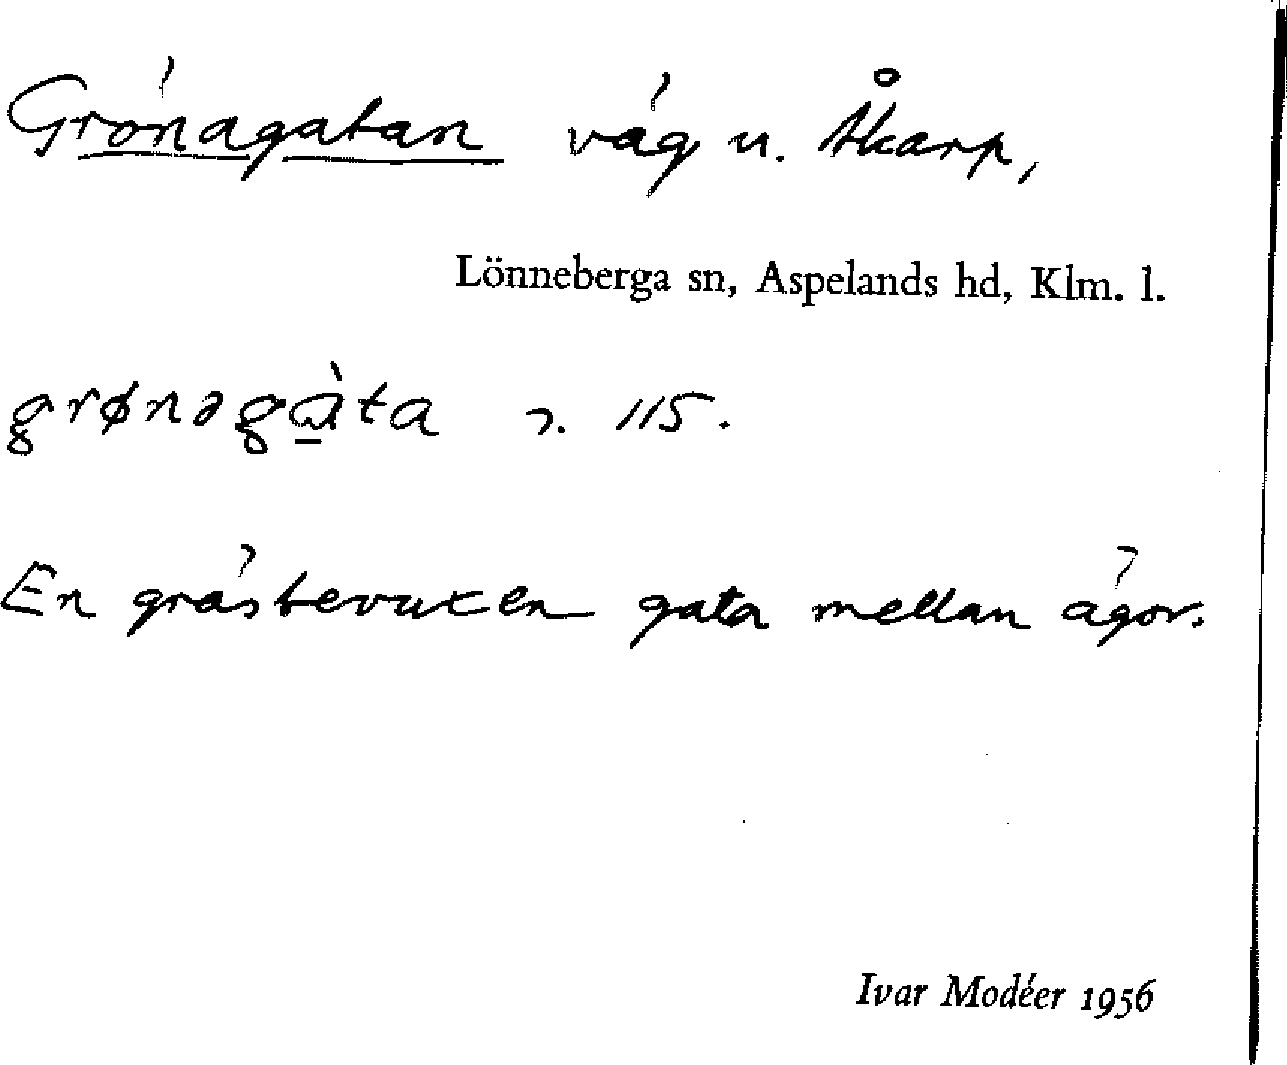 Grönagatan väg u. Åkarp,
Lönneberga sn, Aspelands hd, Klm. l.
grønəgà̱ta 115.
En gräsbevuxen gata mellan ägor.
Ivar Modéer 1956